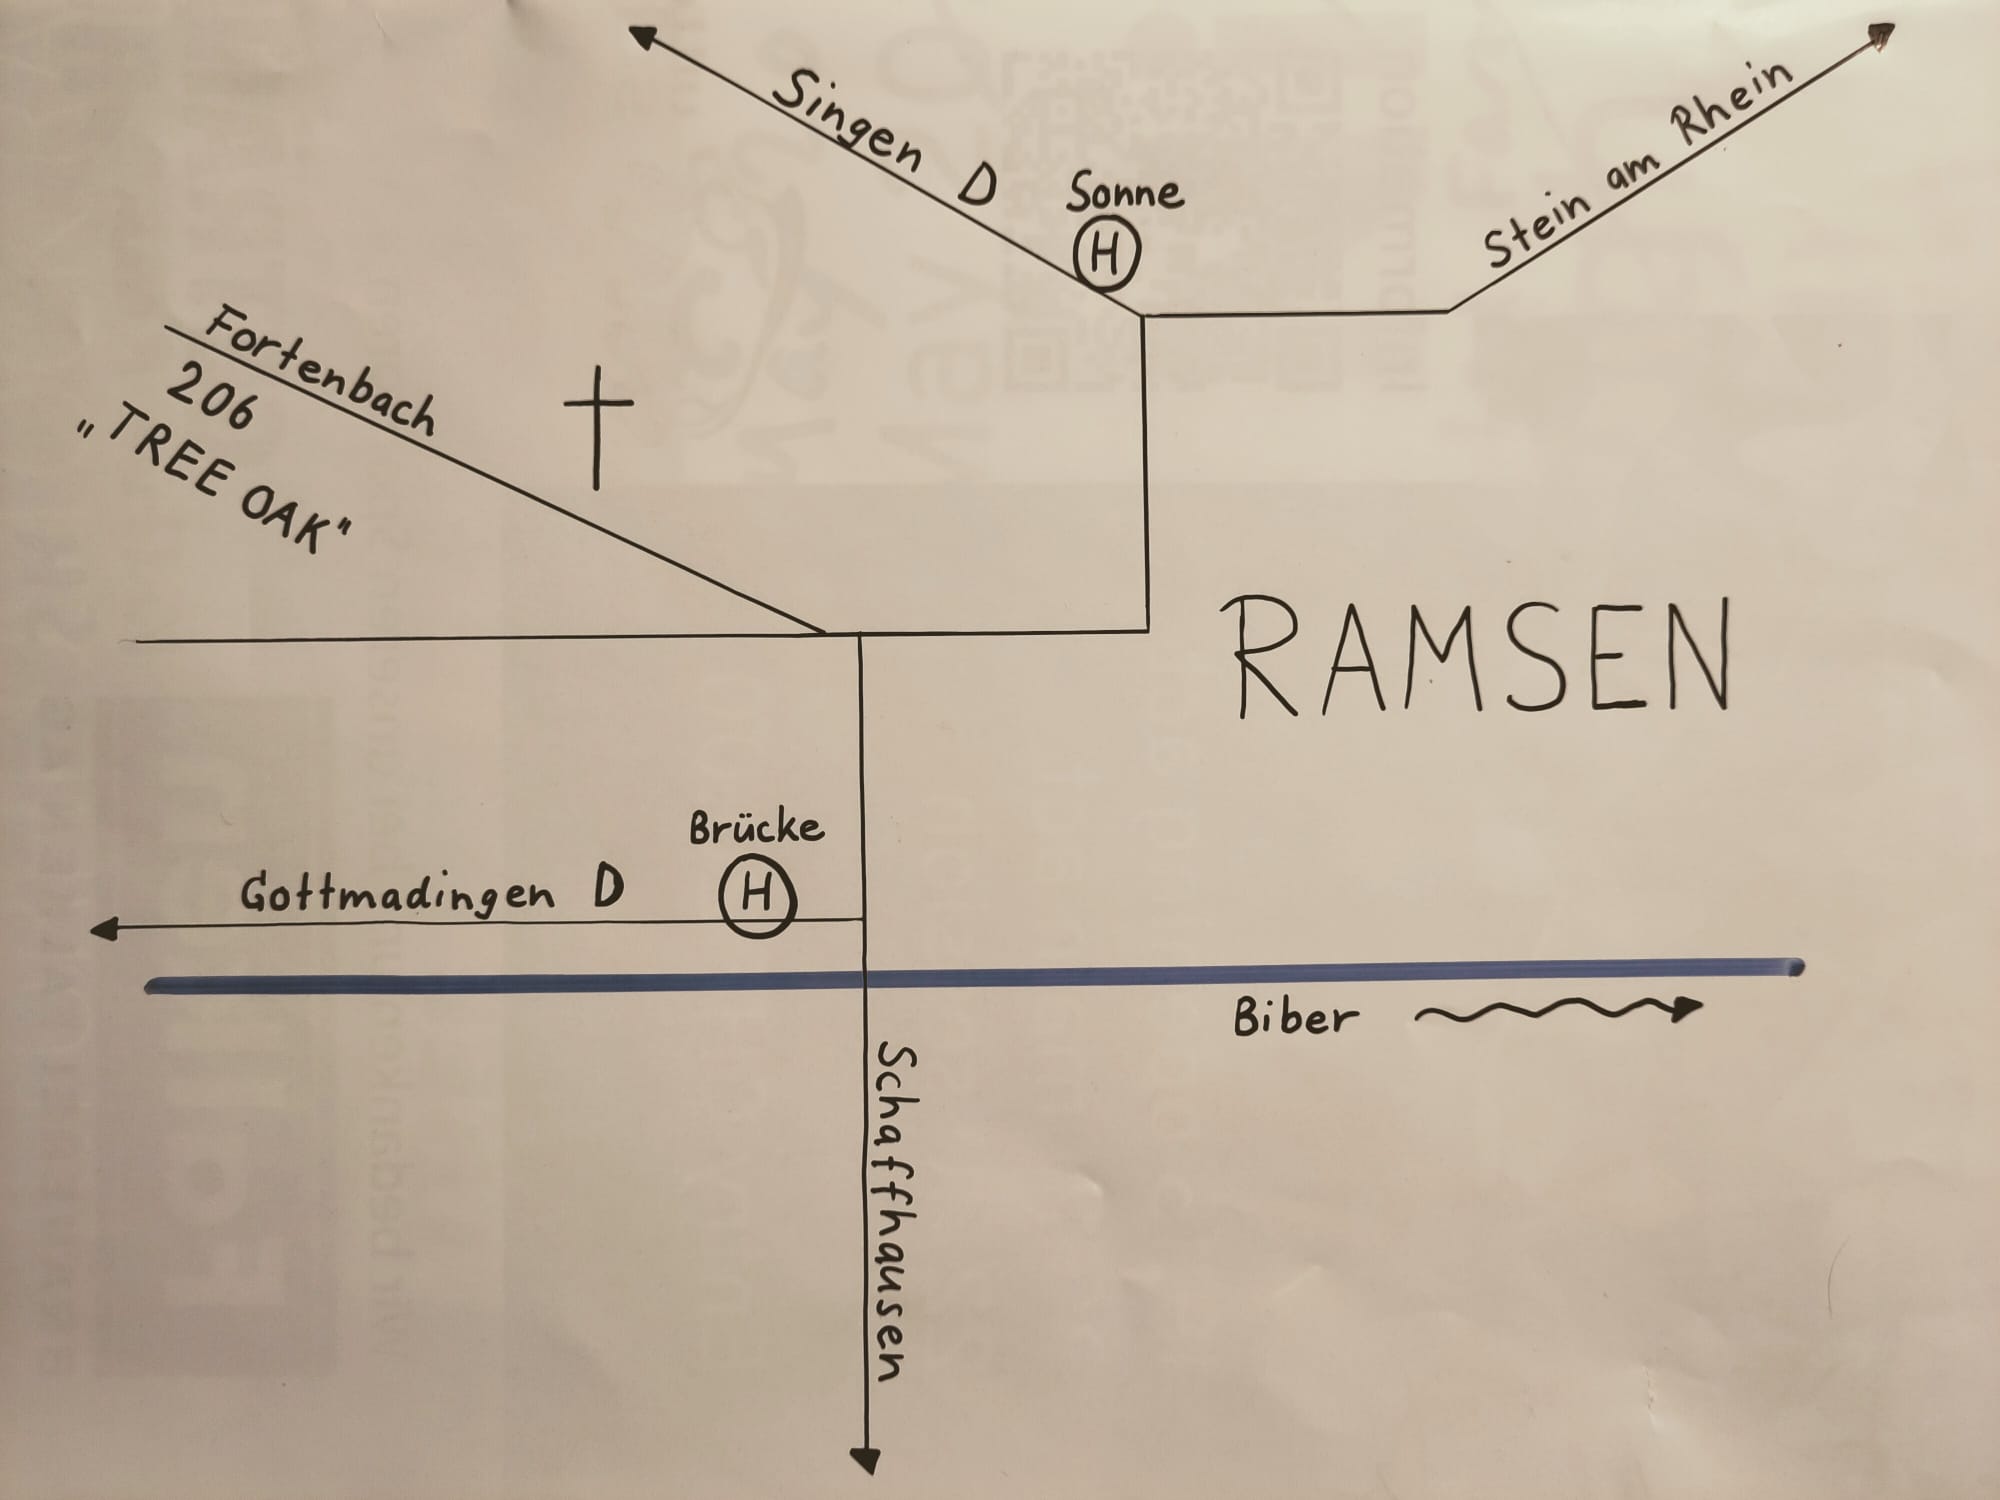 Singen D
Sonne
H
Stein am Rhein
Fortenbach
206
„TREE OAK"
RAMSEN
Brücke
H
Gottmadingen D
Biber
Schaffhausen